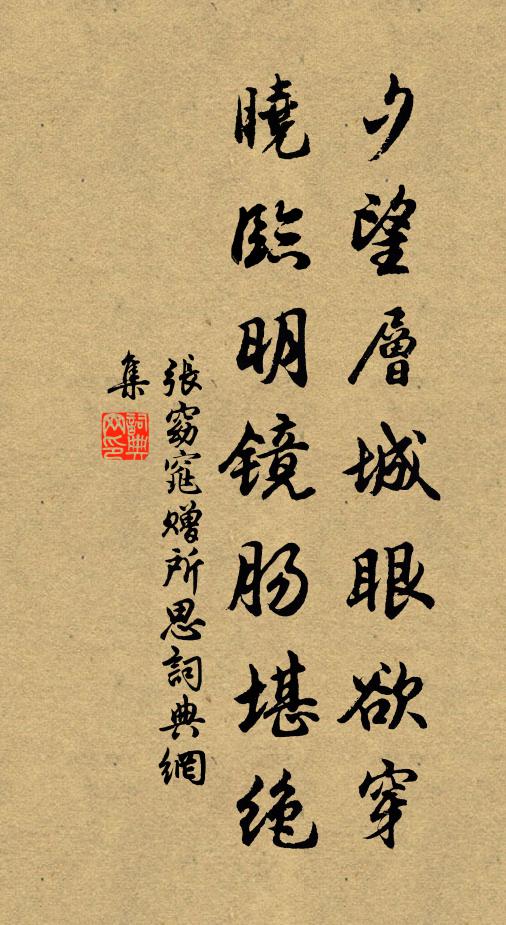 夕望層城眼欲穿
曉臨明镜肠堪绝
張窈窕赠所思詞典網
集
詞典網印